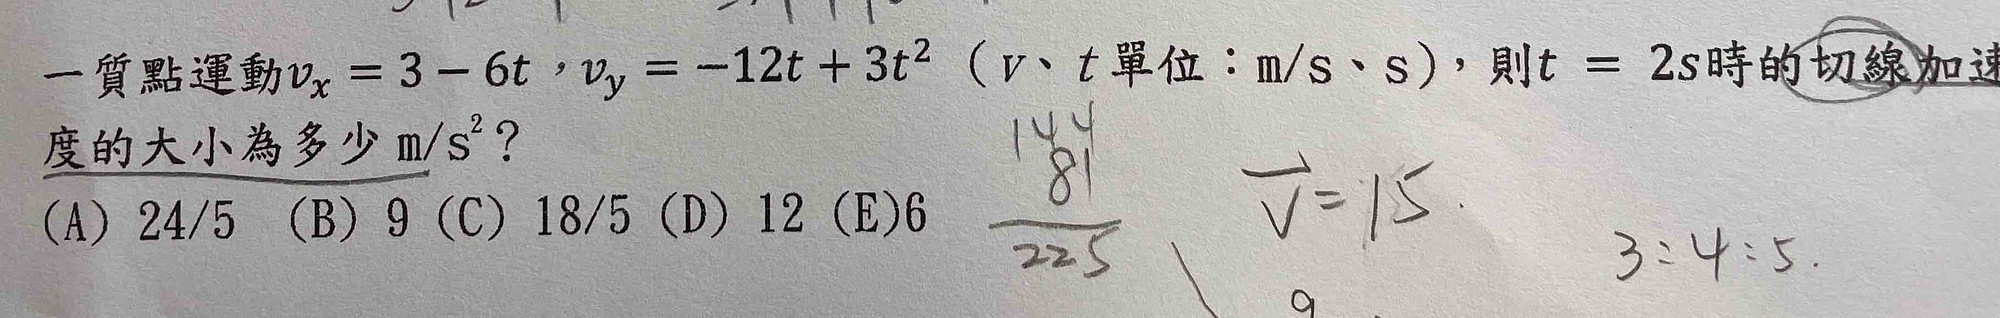 一質點運動vₓ = 3 − 6t，v_y = −12t + 3t²（v、t單位：m/s、s），則t = 2s時的切線加速
度的大小為多少 m/s²？
(A) 24/5 (B) 9 (C) 18/5 (D) 12 (E)6
144
81
225
v⃗=15.
3:4:5.
9